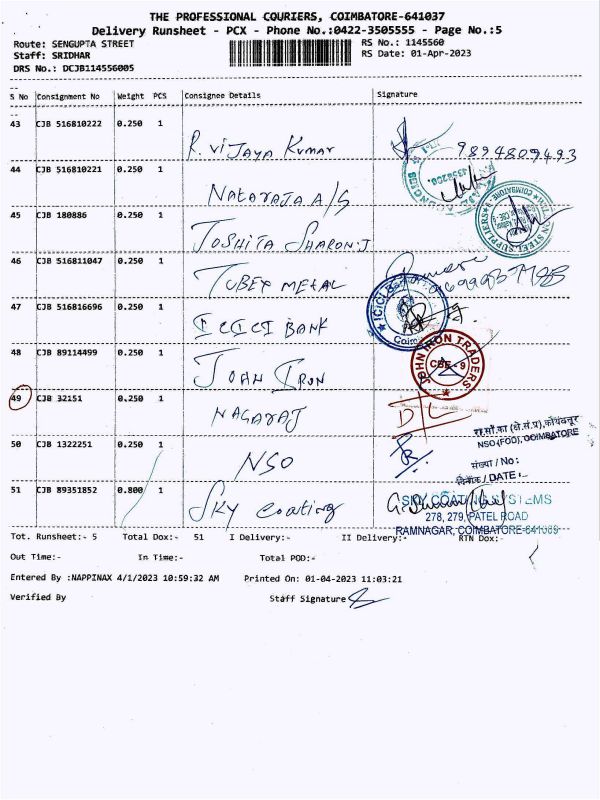 THE PROFESSIONAL COURIERS, COIMBATORE-641037
Delivery Runsheet - PCX - Phone No.:0422-3505555 - Page No.:5
Route: SENGUPTA STREET
RS No.: 1145560
Staff: SRIDHAR
RS Date: 01-Apr-2023
DRS No.: DCJB114556005
S No Consignment No Weight PCS Consignee Details Signature
43 CJB 516810222 0.250 1
R. Vijaya Kumar 9894809493
44 CJB 516810221 0.250 1
Nataraja A/S
45 CJB 180886 0.250 1
Joshita Sharon.J
STEEL SUPPLIERS
46 CJB 516811047 0.250 1
Tubex METAL
47 CJB 516816696 0.250 1
ICICI BANK
ICICI B
Coim
48 CJB 89114499 0.250 1
John Iron
JOHN IRON TRADERS
CBE - 9
49 CJB 32151 0.250 1
NAGARAJ
D/L
50 CJB 1322251 0.250 1
NSO
NSO (FOD), COIMBATORE
संख्या / No:
दिनांक / DATE :-
51 CJB 89351852 0.800 1
Sky coating
SKY COATING SYSTEMS
278, 279, PATEL ROAD
RAMNAGAR, COIMBATORE-641009
Tot. Runsheet:- 5 Total Dox:- 51 I Delivery:- II Delivery:- RTN Dox:-
Out Time:- In Time:- Total POD:-
Entered By :NAPPINAX 4/1/2023 10:59:32 AM Printed On: 01-04-2023 11:03:21
Verified By Staff Signature